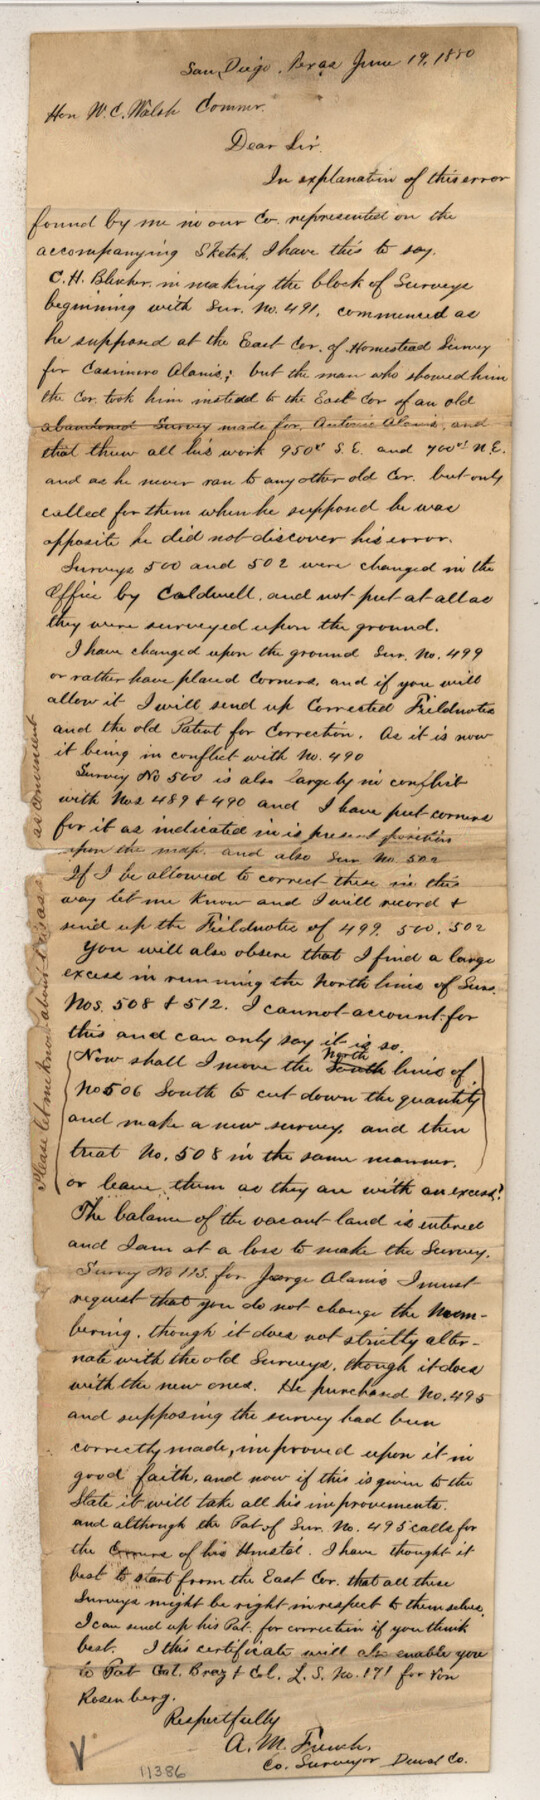 San Diego, Texas June 19, 1880
Hon W. C. Walsh Commr.
Dear Sir.
In explanation of this error
found by me in our Co. represented on the
accompanying Sketch, I have this to say.
C. H. Blucher, in making the block of Surveys
beginning with Sur. No. 491, commenced as
he supposed at the East Cor. of Homestead Survey
for Casimiro Alanis; but the man who showed him
the Cor. took him instead to the East Cor of an old
abandoned Survey made for Antonio Alanis, and
that threw all his work 950 S.E. and 700 N.E.
and as he never ran to any other old Cor. but only
called for them when he supposed he was
opposite he did not discover his error.
Surveys 500 and 502 were changed in the
Office by Caldwell, and not put at all as
they were surveyed upon the ground.
I have changed upon the ground Sur. No. 499
or rather have placed Corners, and if you will
allow it I will send up Corrected Fieldnotes
and the old Patent for Correction. As it is now
it being in conflict with No. 490
Survey No 500 is also largely in conflict
with Nos 489 & 490 and I have put corners
for it as indicated in is present position
upon the map. and also Sur. No. 502
If I be allowed to correct these in this
way let me know and I will record &
send up the Fieldnotes of 499. 500. 502
You will also observe that I find a large
excess in running the North lines of Surs.
Nos. 508 & 512. I cannot account for
this and can only say it is so.
North
Now shall I move the South lines of
No 506 South to cut down the quantity
and make a new survey, and then
treat No. 508 in the same manner.
or leave them as they are with an excess?
The balance of the vacant land is entered
and I am at a loss to make the Survey.
Survey No 113. for Jorge Alanis I must
request that you do not change the Num-
bering, though it does not strictly alter-
nate with the old Surveys, though it does
with the new ones. He purchased No. 495
and supposing the survey had been
correctly made, improved upon it in
good faith, and now if this is given to the
State it will take all his improvements.
and although the Pat. of Sur. No. 495 calls for
the Corners of his Hmst'd. I have thought it
best to start from the East Cor. that all these
Surveys might be right in respect to themselves.
I can send up his Pat. for correction if you think
best. I this certificate will also enable you
to Pat Gal. Braz & Col. L. S. No. 171 for Von
Rosenberg.
Respectfully
A. M. French,
Co. Surveyor Duval Co.
Please let me know about as
as convenient
V
11386